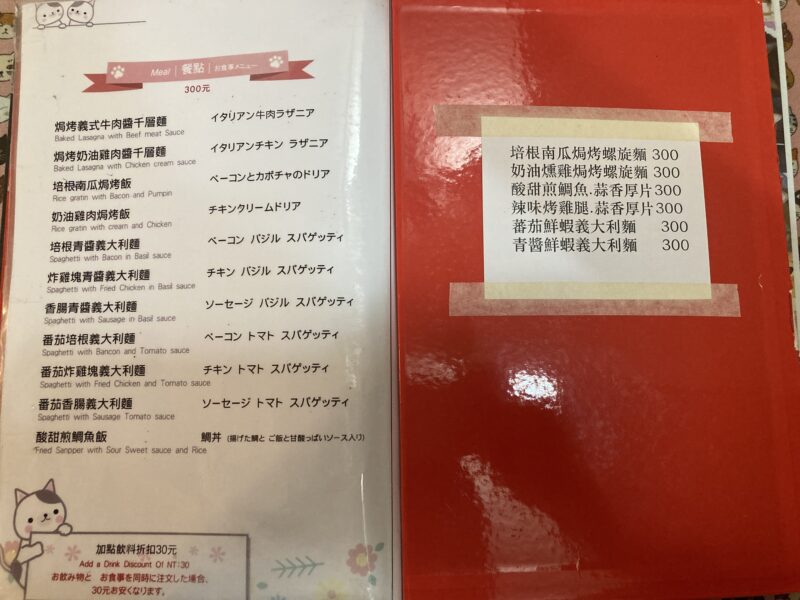 Meal | 餐點 | お食事メニュー
300元
焗烤義式牛肉醬千層麵 イタリアン牛肉ラザニア
Baked Lasagna with Beef meat Sauce
焗烤奶油雞肉醬千層麵 イタリアンチキン ラザニア
Baked Lasagna with Chicken cream sauce
培根南瓜焗烤飯 ベーコンとカボチャのドリア
Rice gratin with Bacon and Pumpin
奶油雞肉焗烤飯 チキンクリームドリア
Rice gratin with cream and Chicken
培根青醬義大利麵 ベーコン バジル スパゲッティ
Spaghetti with Bacon in Basil sauce
炸雞塊青醬義大利麵 チキン バジル スパゲッティ
Spaghetti with Fried Chicken in Basil sauce
香腸青醬義大利麵 ソーセージ バジル スパゲッティ
Spaghetti with Sausage in Basil sauce
番茄培根義大利麵 ベーコン トマト スパゲッティ
Spaghetti with Bancon and Tomato sauce
番茄炸雞塊義大利麵 チキン トマト スパゲッティ
Spaghetti with Fried Chicken and Tomato sauce
番茄香腸義大利麵 ソーセージ トマト スパゲッティ
Spaghetti with Sausage Tomato sauce
酸甜煎鯛魚飯 鯛丼 (揚げた鯛と ご飯と甘酸っぱいソース入り)
Fried Sanpper with Sour Sweet sauce and Rice
加點飲料折扣30元
Add a Drink Discount Of NT:30
お飲み物と お食事を同時に注文した場合、
30元お安くなります。
培根南瓜焗烤螺旋麵 300
奶油燻雞焗烤螺旋麵 300
酸甜煎鯛魚.蒜香厚片 300
辣味烤雞腿.蒜香厚片 300
蕃茄鮮蝦義大利麵 300
青醬鮮蝦義大利麵 300